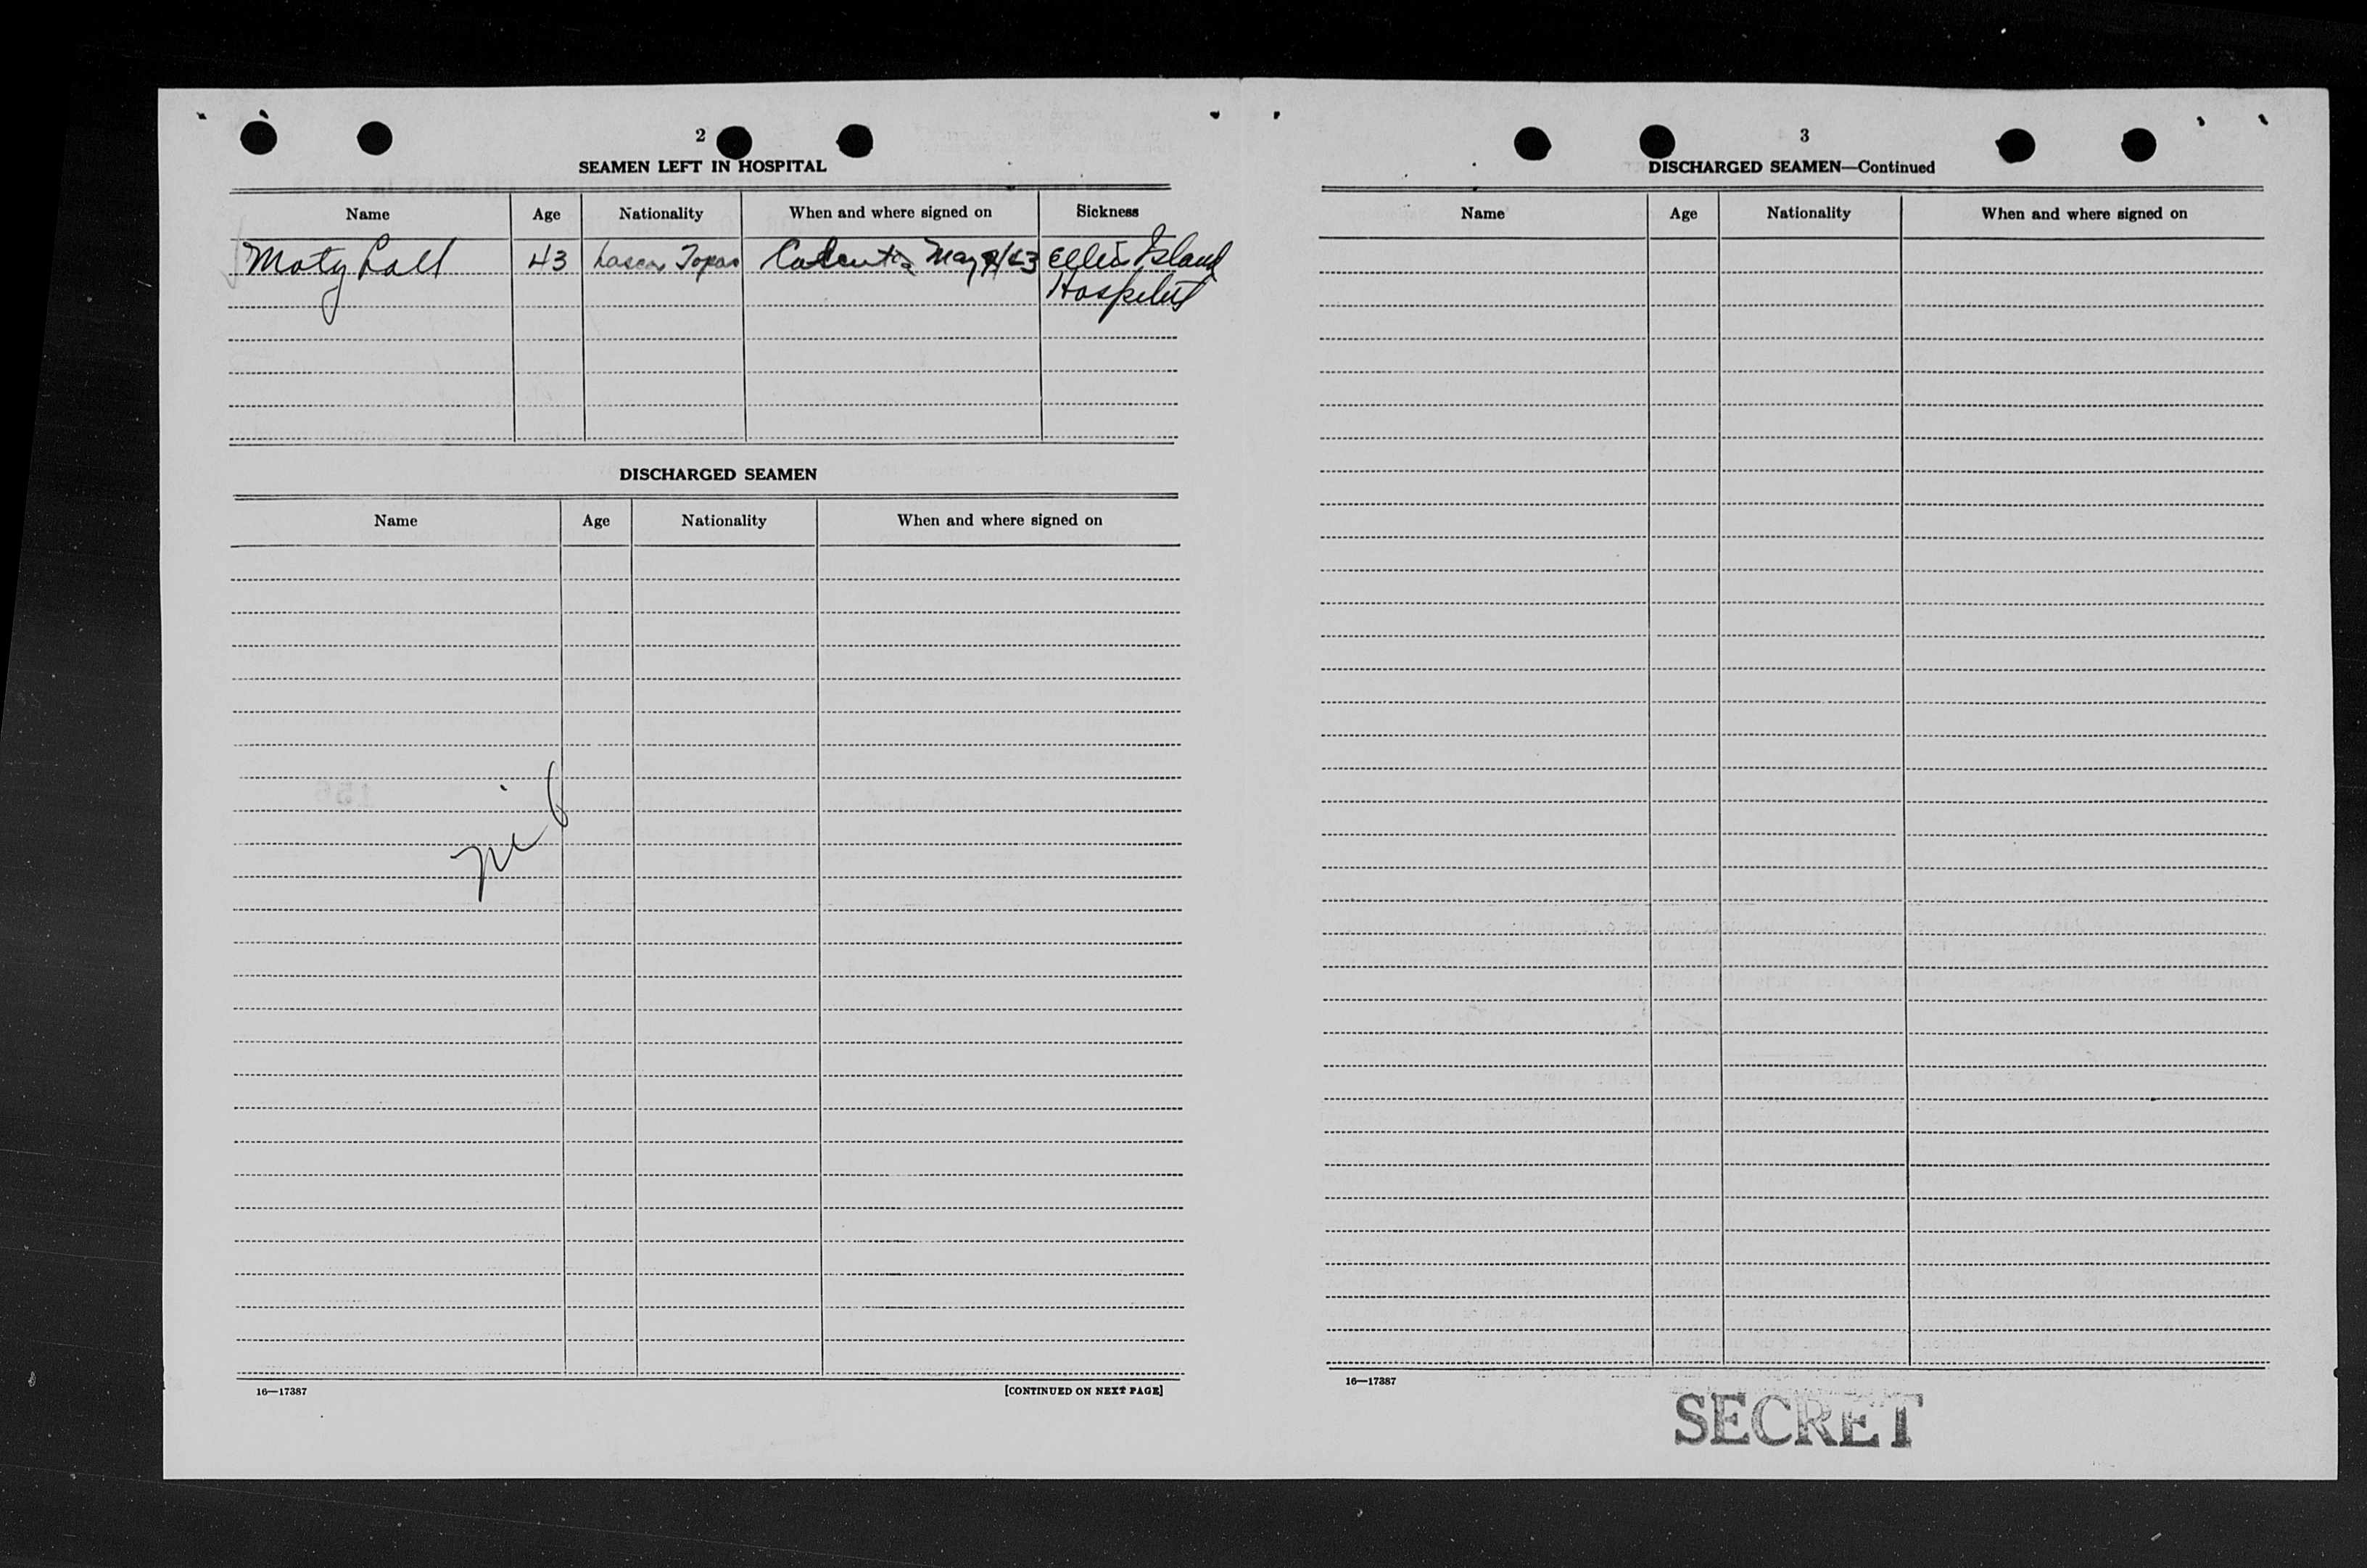 2
SEAMEN LEFT IN HOSPITAL
Name Age Nationality When and where signed on Sickness
Moty Lall 43 Lascar Topas Calcutta May /43 Ellis Island
Hospital
DISCHARGED SEAMEN
Name Age Nationality When and where signed on
nil
16—17387 [CONTINUED ON NEXT PAGE]
3
DISCHARGED SEAMEN—Continued
Name Age Nationality When and where signed on
16—17387
SECRET